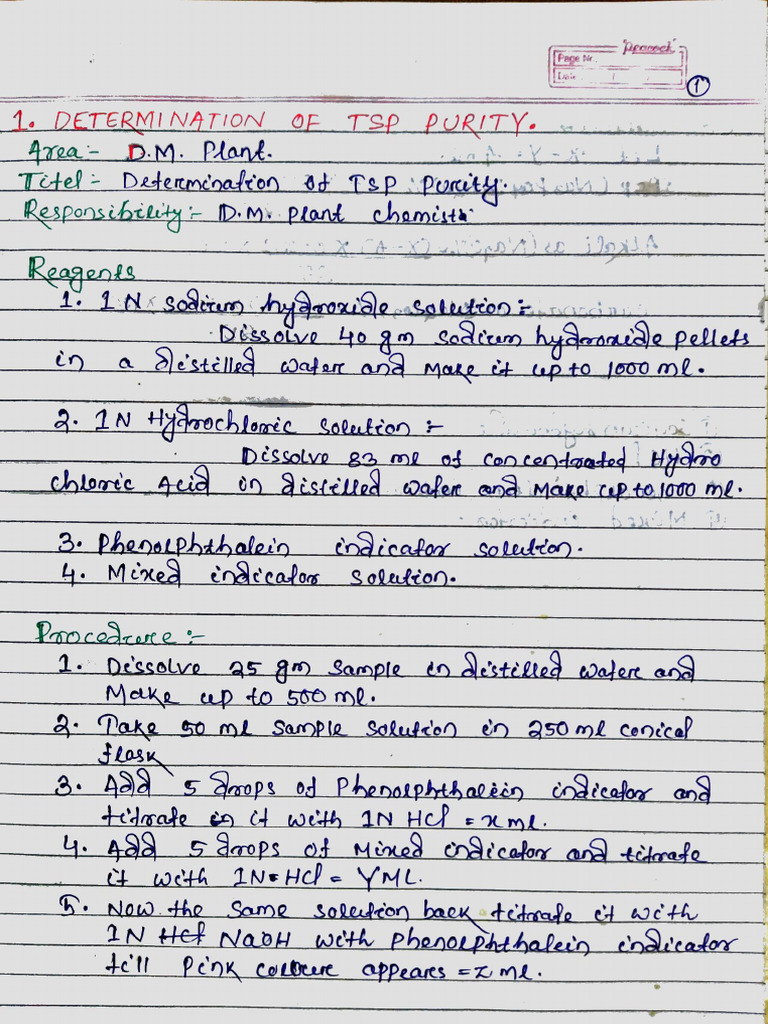 Peacock
Page Nr.
Date / /
1
1. DETERMINATION OF TSP PURITY.
Area:- D.M. Plant.
Titel:- Determination of TSP Purity.
Responsibility:- D.M. Plant Chemist.
Reagents
1. 1 N sodium hydroxide solution:-
Dissolve 40 gm sodium hydroxide pellets
in a distilled water and Make it up to 1000 ml.
2. 1N Hydrochloric solution:-
Dissolve 83 ml of concentrated Hydro
chloric Acid in distilled water and Make up to 1000 ml.
3. Phenolphthalein indicator solution.
4. Mixed indicator solution.
Procedure:-
1. Dissolve 25 gm sample in distilled water and
Make up to 500 ml.
2. Take 50 ml sample solution in 250 ml conical
flask
3. Add 5 drops of Phenolphthalein indicator and
titrate in it with 1N HCl = x ml.
4. Add 5 drops of Mixed indicator and titrate
it with 1N HCl = Y ML.
5. Now the same solution back titrate it with
1N HCl NaOH with Phenolphthalein indicator
till Pink colour appears = z ml.